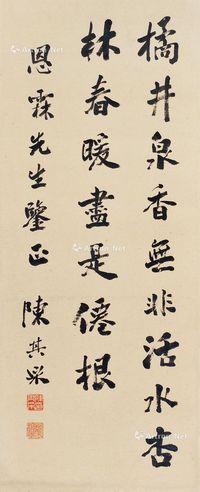 橘井泉香無非活水杏
林春暖盡是僊根
恩霖先生鑒正
陳其采